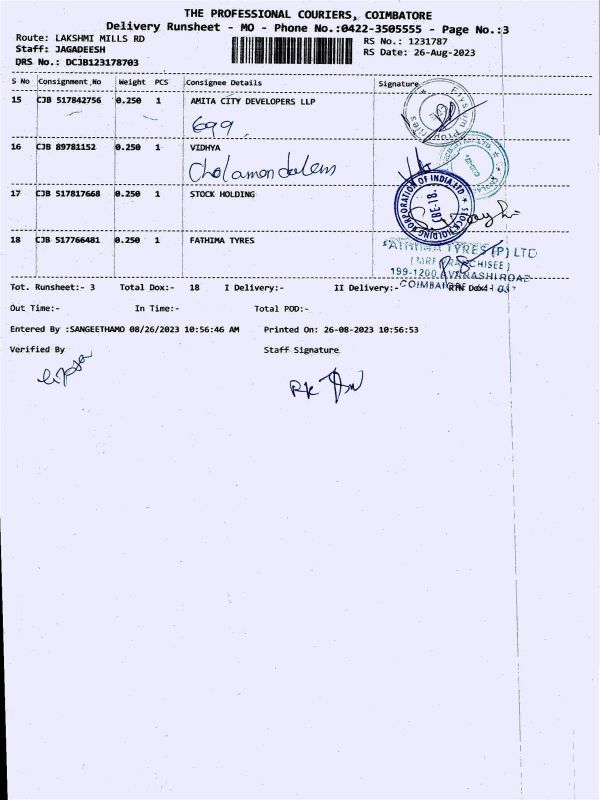 THE PROFESSIONAL COURIERS, COIMBATORE
Delivery Runsheet - MO - Phone No.:0422-3505555 - Page No.:3
Route: LAKSHMI MILLS RD
RS No.: 1231787
Staff: JAGADEESH
RS Date: 26-Aug-2023
DRS No.: DCJB123178703
S No Consignment No Weight PCS Consignee Details Signature
15 CJB 517842756 0.250 1 AMITA CITY DEVELOPERS LLP
699
16 CJB 89781152 0.250 1 VIDHYA
Cholamondalem
17 CJB 517817668 0.250 1 STOCK HOLDING
STOCK HOLDING CORPORATION OF INDIA LTD
CBE-18.
18 CJB 517766481 0.250 1 FATHIMA TYRES
FATHIMA TYRES (P) LTD
(MRF FRANCHISEE)
199-1200, AVANASHI ROAD
Tot. Runsheet:- 3 Total Dox:- 18 I Delivery:- II Delivery:- RTN Dox:-
COIMBATORE
Out Time:- In Time:- Total POD:-
Entered By :SANGEETHAMO 08/26/2023 10:56:46 AM Printed On: 26-08-2023 10:56:53
Verified By Staff Signature